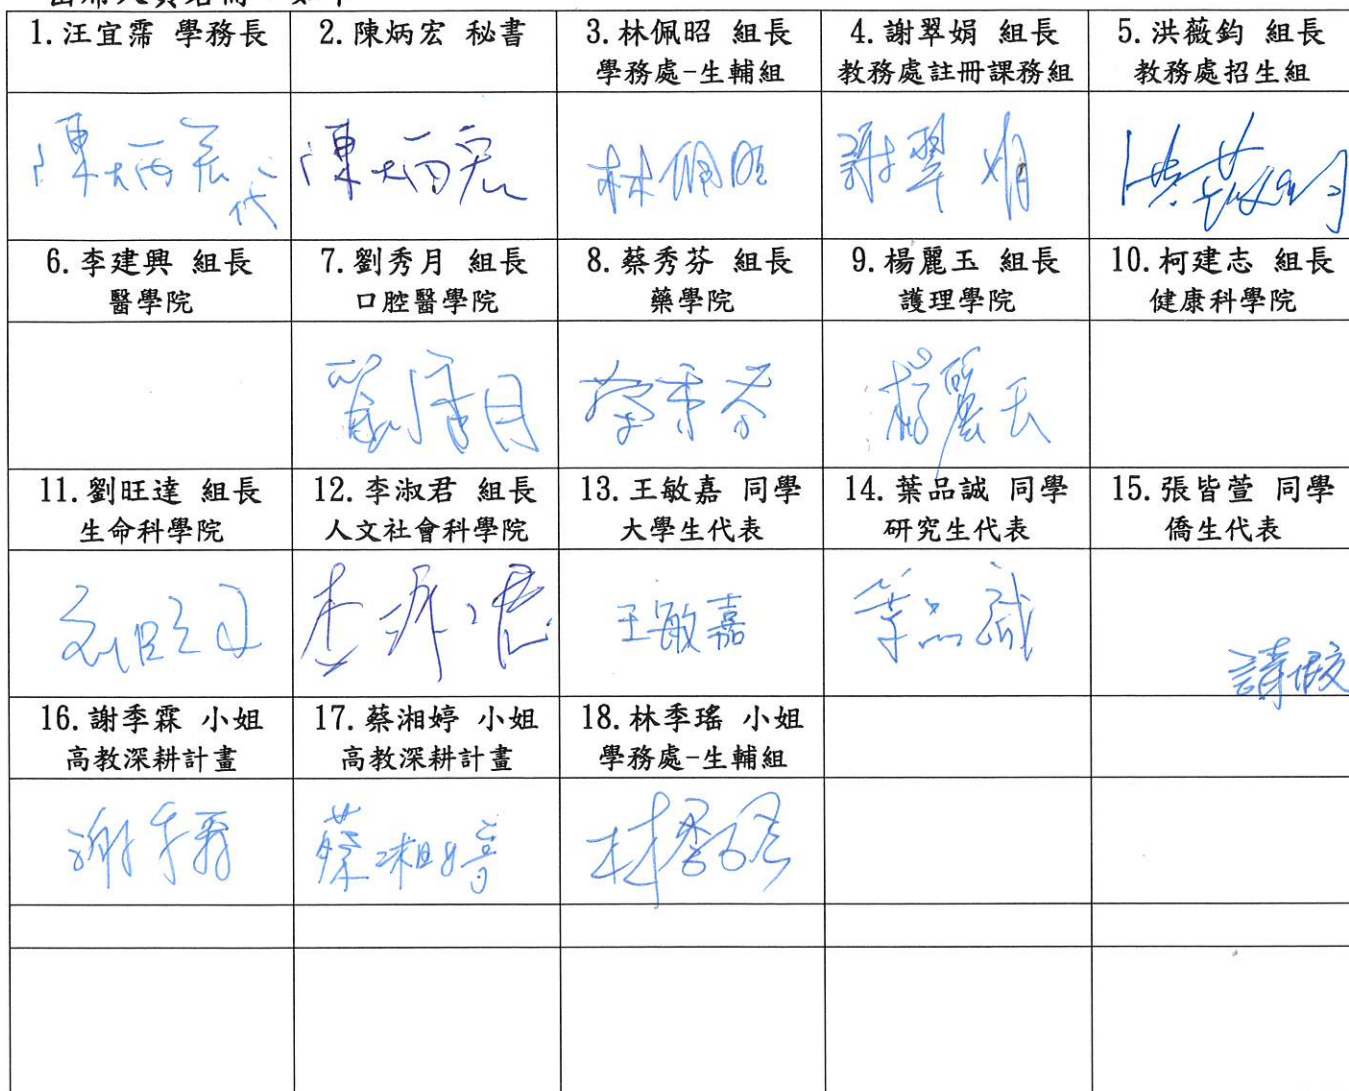 1.汪宜霈 學務長
2.陳炳宏 秘書
3.林佩昭 組長
學務處-生輔組
4.謝翠娟 組長
教務處註冊課務組
5.洪薇鈞 組長
教務處招生組
陳炳宏代
陳炳宏
林佩昭
謝翠娟
洪薇鈞
6.李建興 組長
醫學院
7.劉秀月 組長
口腔醫學院
8.蔡秀芬 組長
藥學院
9.楊麗玉 組長
護理學院
10.柯建志 組長
健康科學院
劉秀月
蔡秀芬
楊麗玉
11.劉旺達 組長
生命科學院
12.李淑君 組長
人文社會科學院
13.王敏嘉 同學
大學生代表
14.葉品誠 同學
研究生代表
15.張皆萱 同學
僑生代表
劉旺達
李淑君
王敏嘉
葉品誠
請假
16.謝季霖 小姐
高教深耕計畫
17.蔡湘婷 小姐
高教深耕計畫
18.林季瑤 小姐
學務處-生輔組
謝季霖
蔡湘婷
林季瑤